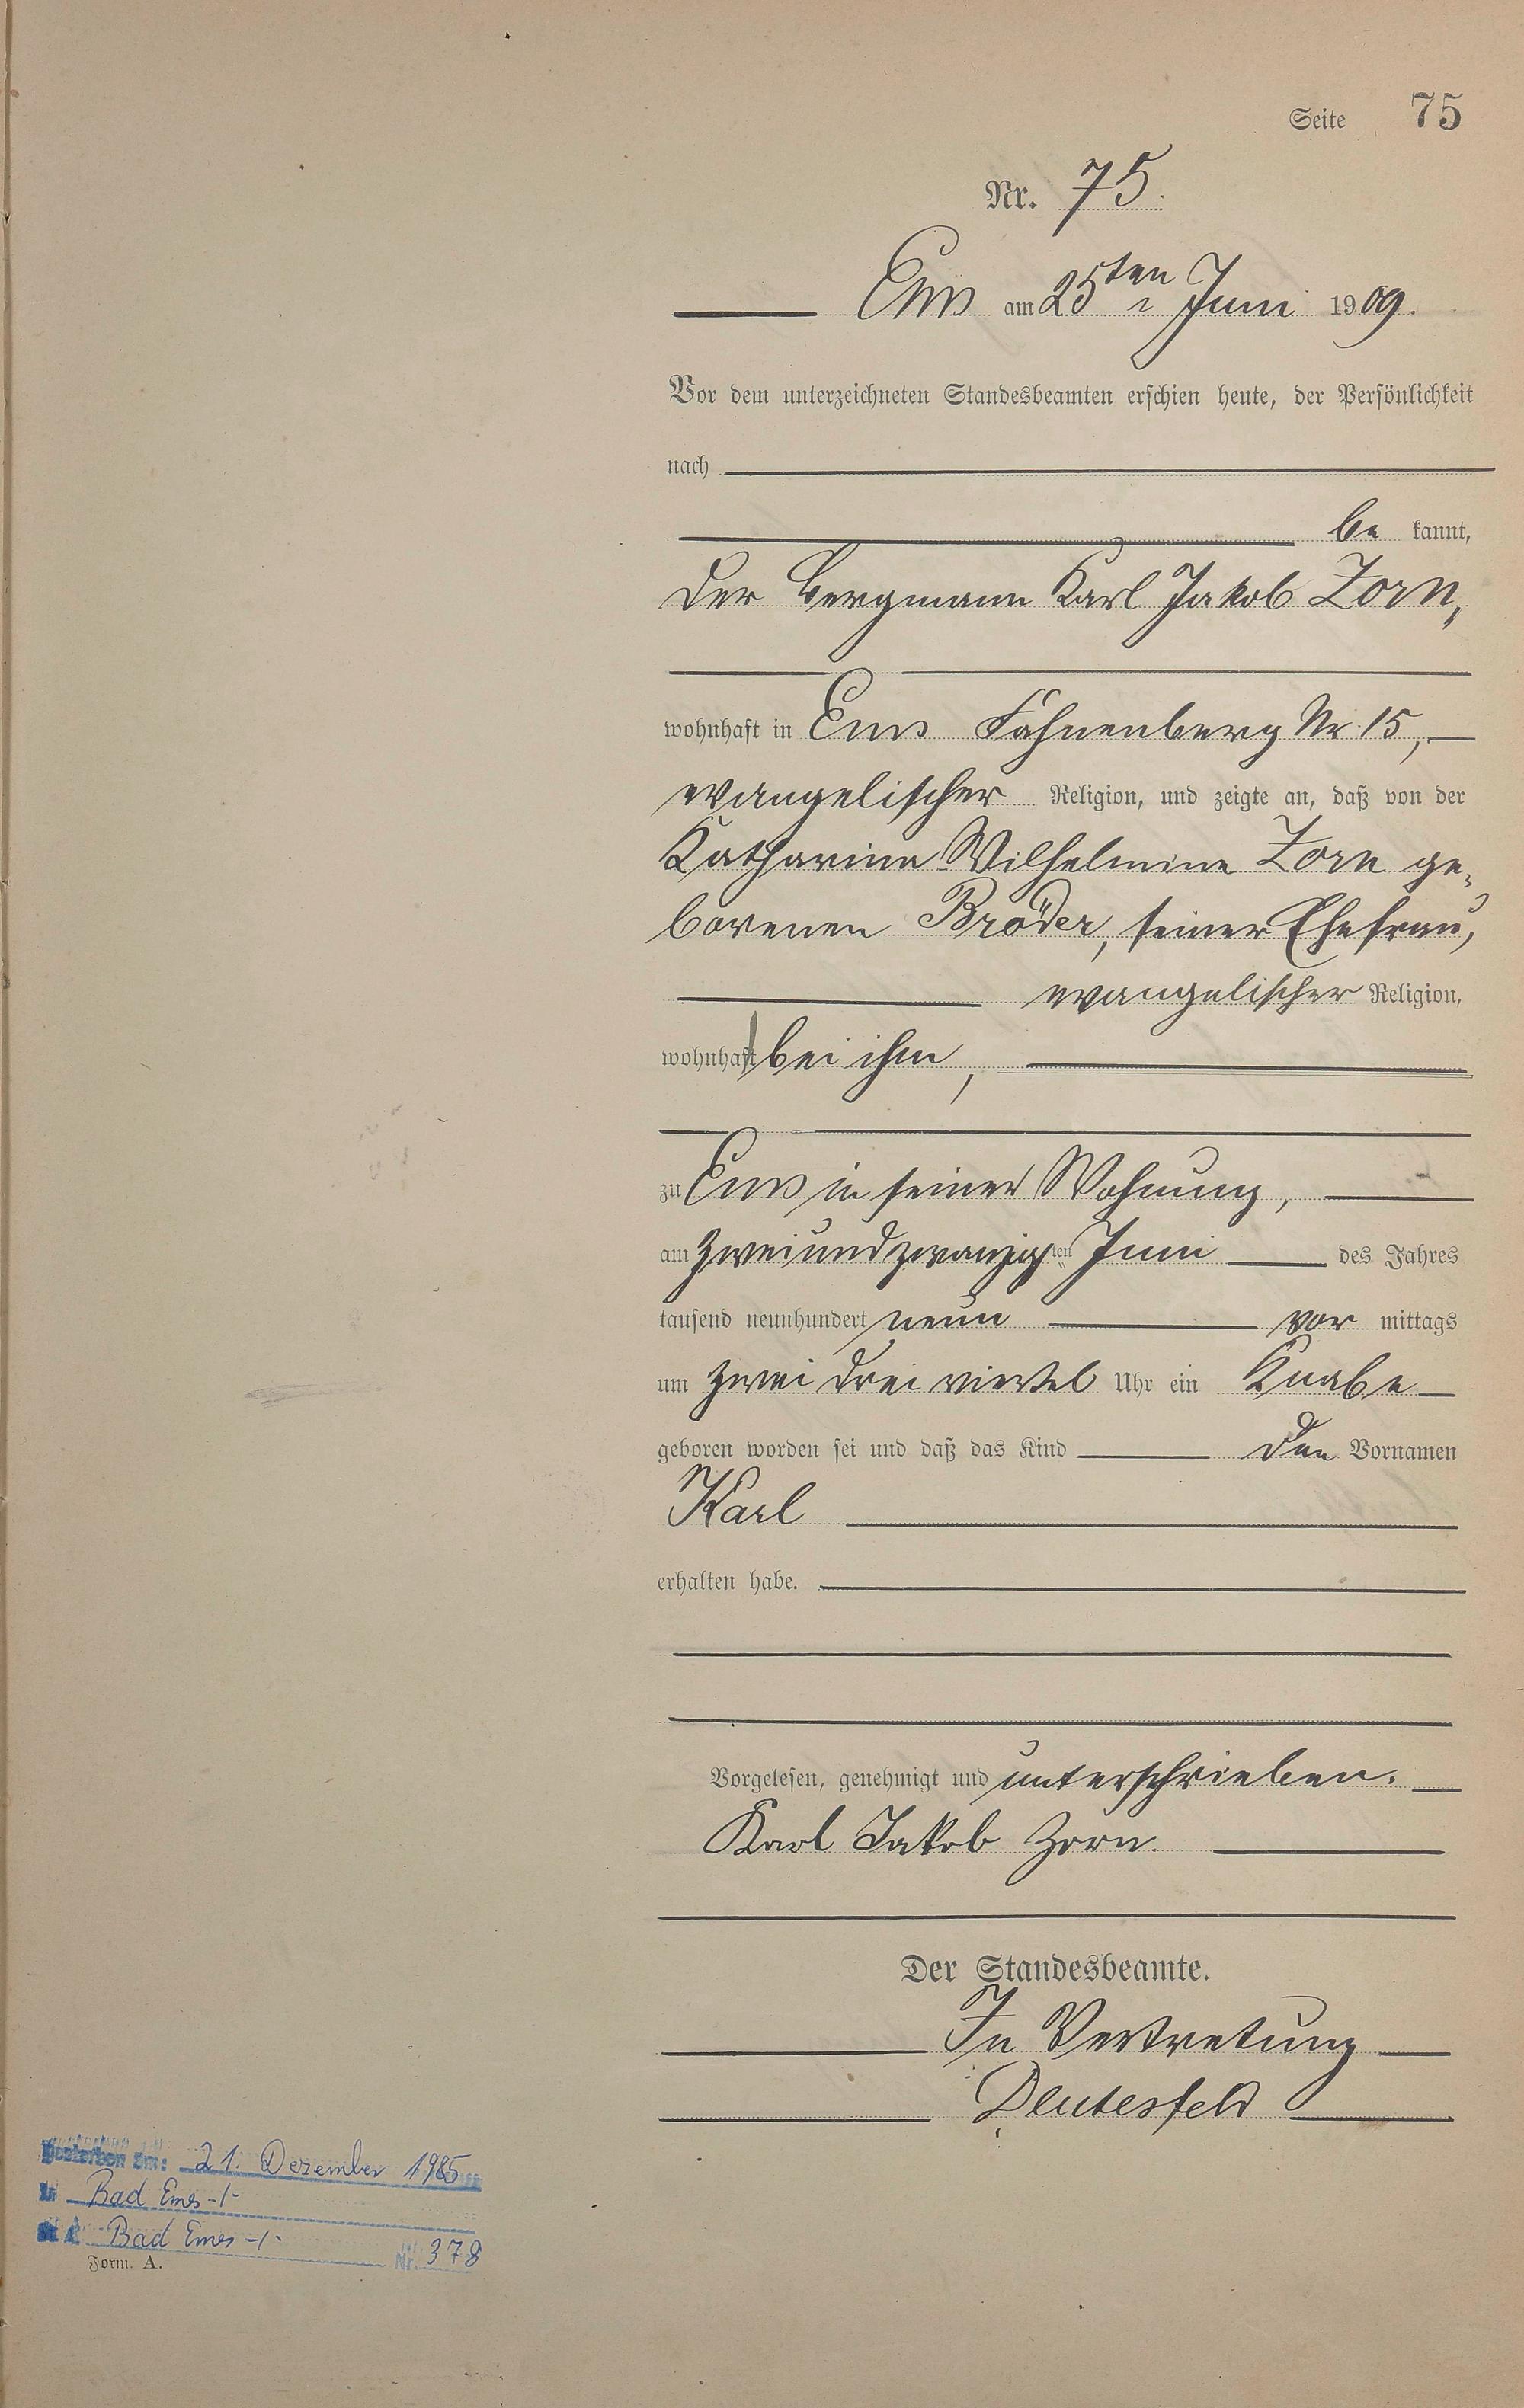 Seite 75
Nr. 75.
Ems am 25ten Juni 1909.
Vor dem unterzeichneten Standesbeamten erschien heute, der Persönlichkeit
nach
be kannt,
der Bergmann Karl Jakob Zorn,
wohnhaft in Ems Fahnenberg Nr. 15,
evangelischer Religion, und zeigte an, daß von der
Katharina Wilhelmine Zorn ge-
borenen Bröder, seiner Ehefrau,
evangelischer Religion,
wohnhaft bei ihm,
zu Ems in seiner Wohnung,
am zweiundzwanzigsten Juni des Jahres
tausend neunhundert neun vor mittags
um zwei drei viertel Uhr ein Knabe
geboren worden sei und daß das Kind den Vornamen
Karl
erhalten habe.
Vorgelesen, genehmigt und unterschrieben.
Karl Jakob Zorn.
Der Standesbeamte.
In Vertretung
Deutesfeld
Gestorben am: 21. Dezember 1985
in Bad Ems -/-
St. A. Bad Ems -/- Nr. 378
Form. A.